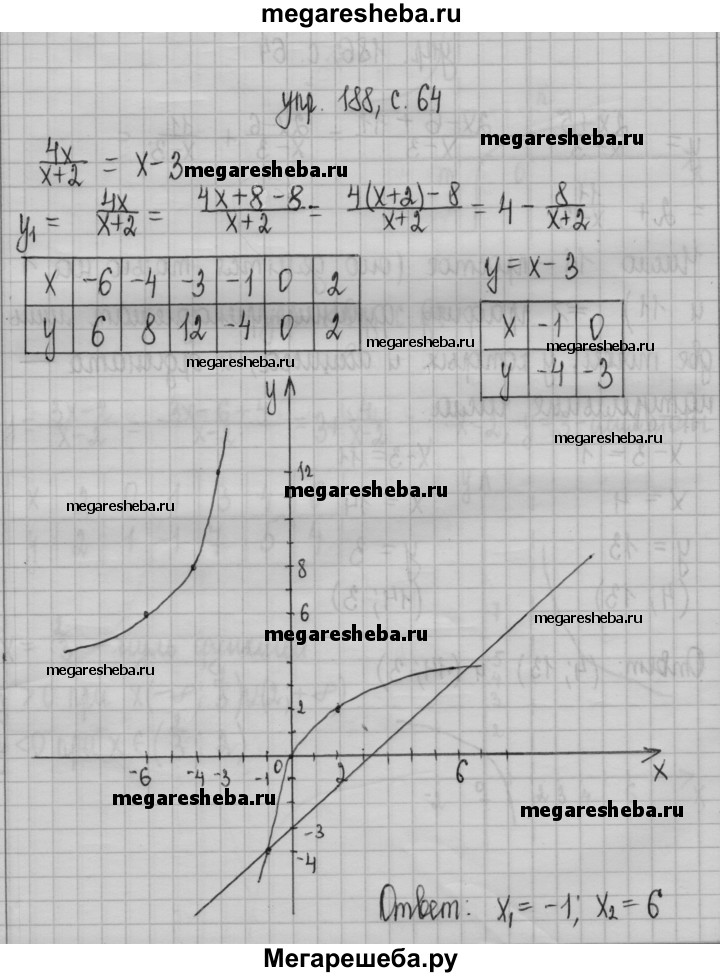 megaresheba.ru
упр. 188, с. 64
megaresheba.ru
4x/(x+2) = x-3 megaresheba.ru
y₁ = 4x/(x+2) = (4x+8-8)/(x+2) = (4(x+2)-8)/(x+2) = 4 - 8/(x+2)
y = x-3
x -6 -4 -3 -1 0 2
y 6 8 12 -4 0 2
x -1 0
y -4 -3
megaresheba.ru
megaresheba.ru
megaresheba.ru
megaresheba.ru
y
12
megaresheba.ru
megaresheba.ru
8
6
megaresheba.ru
megaresheba.ru
megaresheba.ru
2
-6 -4 -3 -1 0 2 6 x
megaresheba.ru
megaresheba.ru
-3
-4
Ответ: x₁ = -1; x₂ = 6
Мегарешеба.ру